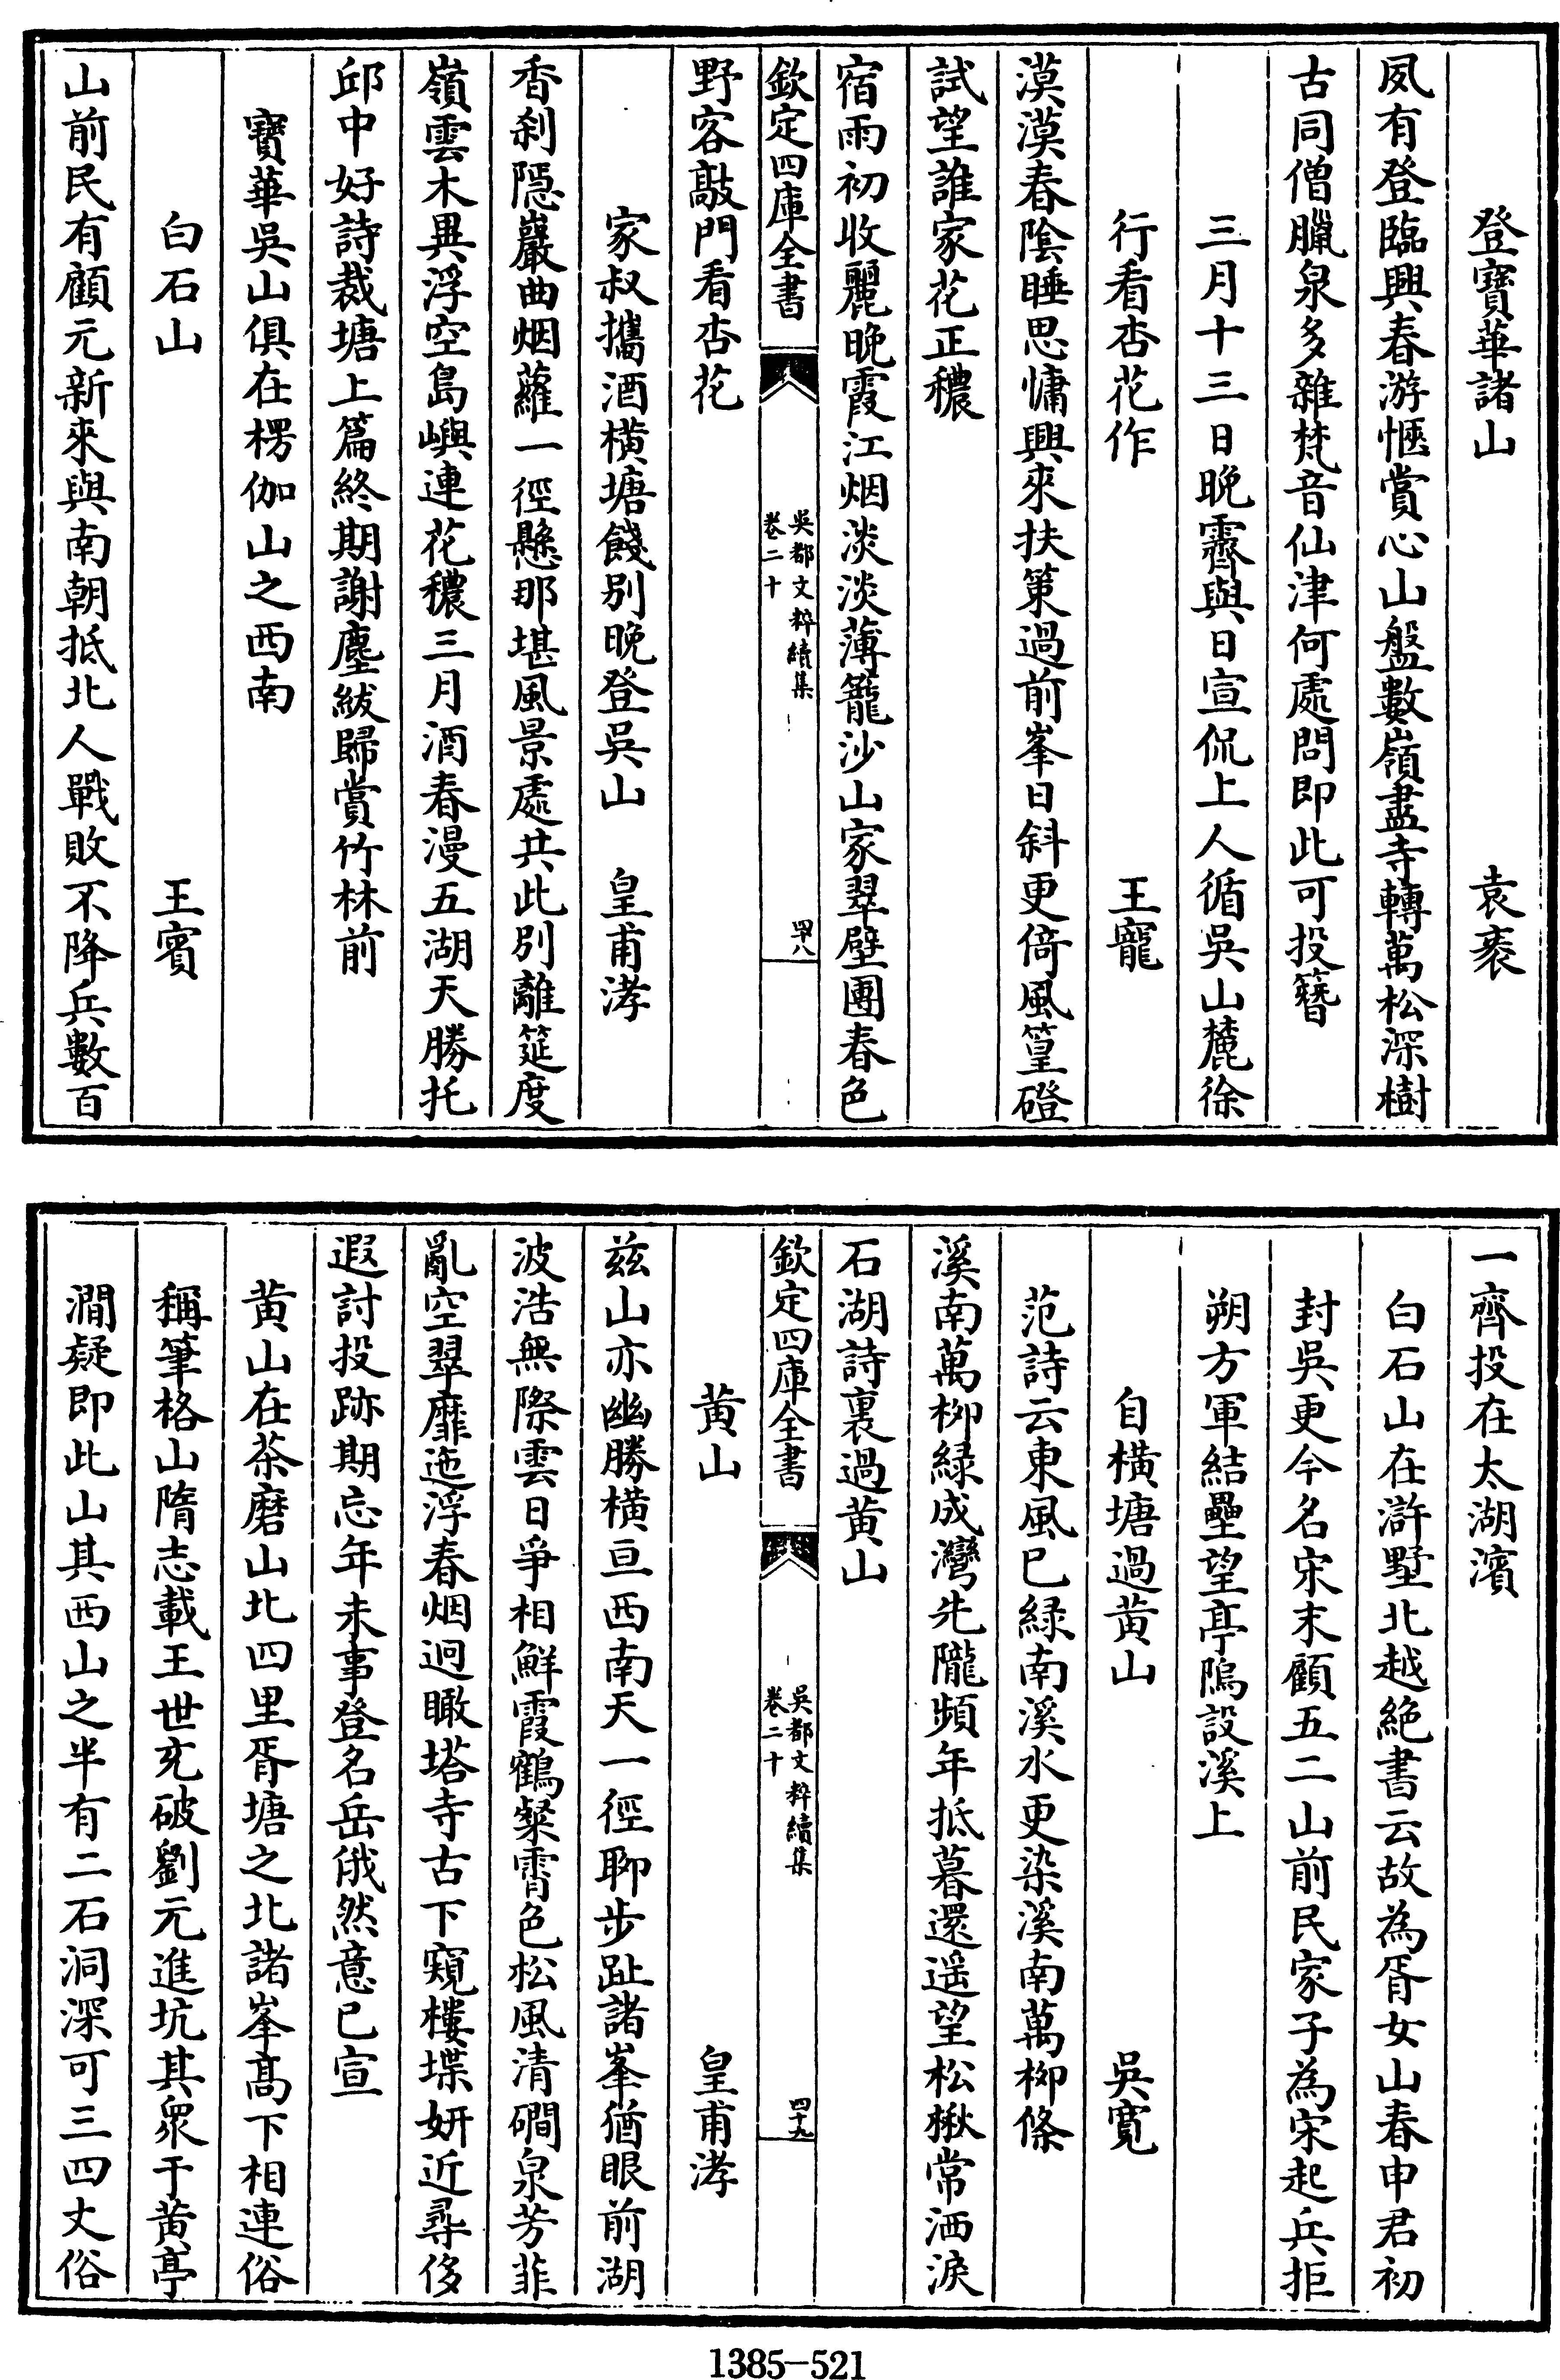 登寶華諸山　袁袠
夙有登臨興春游愜賞心山盤數嶺盡寺轉萬松深樹
古同僧臘泉多雜梵音仙津何處問即此可投簪
三月十三日晚霽與日宣侃上人循吳山麓徐
行看杏花作　王寵
漠漠春陰睡思慵興來扶策過前峯日斜更倚風篁磴
試望誰家花正穠
宿雨初收麗晚霞江烟淡淡薄籠沙山家翠壁團春色
欽定四庫全書
吳都文粹續集
卷二十
四八
野客敲門看杏花
家叔攜酒橫塘餞別晚登吳山　皇甫涍
香刹隠巖曲烟蘿一徑懸那堪風景處共此別離筵度
嶺雲木異浮空島嶼連花穠三月酒春漫五湖天勝托
邱中好詩裁塘上篇終期謝塵紱歸賞竹林前
寶華吳山俱在楞伽山之西南
白石山　王賓
山前民有顧元新來與南朝抵北人戰敗不降兵數百
一齊投在太湖濱
白石山在滸墅北越絶書云故為胥女山春申君初
封吳更今名宋末顧五二山前民家子為宋起兵拒
朔方軍結壘望亭隖設溪上
自橫塘過黃山　吳寬
范詩云東風已緑南溪水更染溪南萬栁條
溪南萬栁緑成灣先隴頻年抵暮還遥望松楸常洒淚
石湖詩裏過黃山
欽定四庫全書
吳都文粹續集
卷二十
四十九
黃山　皇甫涍
茲山亦幽勝橫亘西南天一徑聊步趾諸峯猶眼前湖
波浩無際雲日爭相鮮霞鶴粲霄色松風清磵泉芳菲
亂空翠靡迤浮春烟迥瞰塔寺古下窺樓堞妍近尋侈
遐討投跡期忘年未事登名岳俄然意已宣
黃山在茶磨山北四里胥塘之北諸峯髙下相連俗
稱筆格山隋志載王世充破劉元進坑其衆于黃亭
澗疑即此山其西山之半有二石洞深可三四丈俗
1385—521